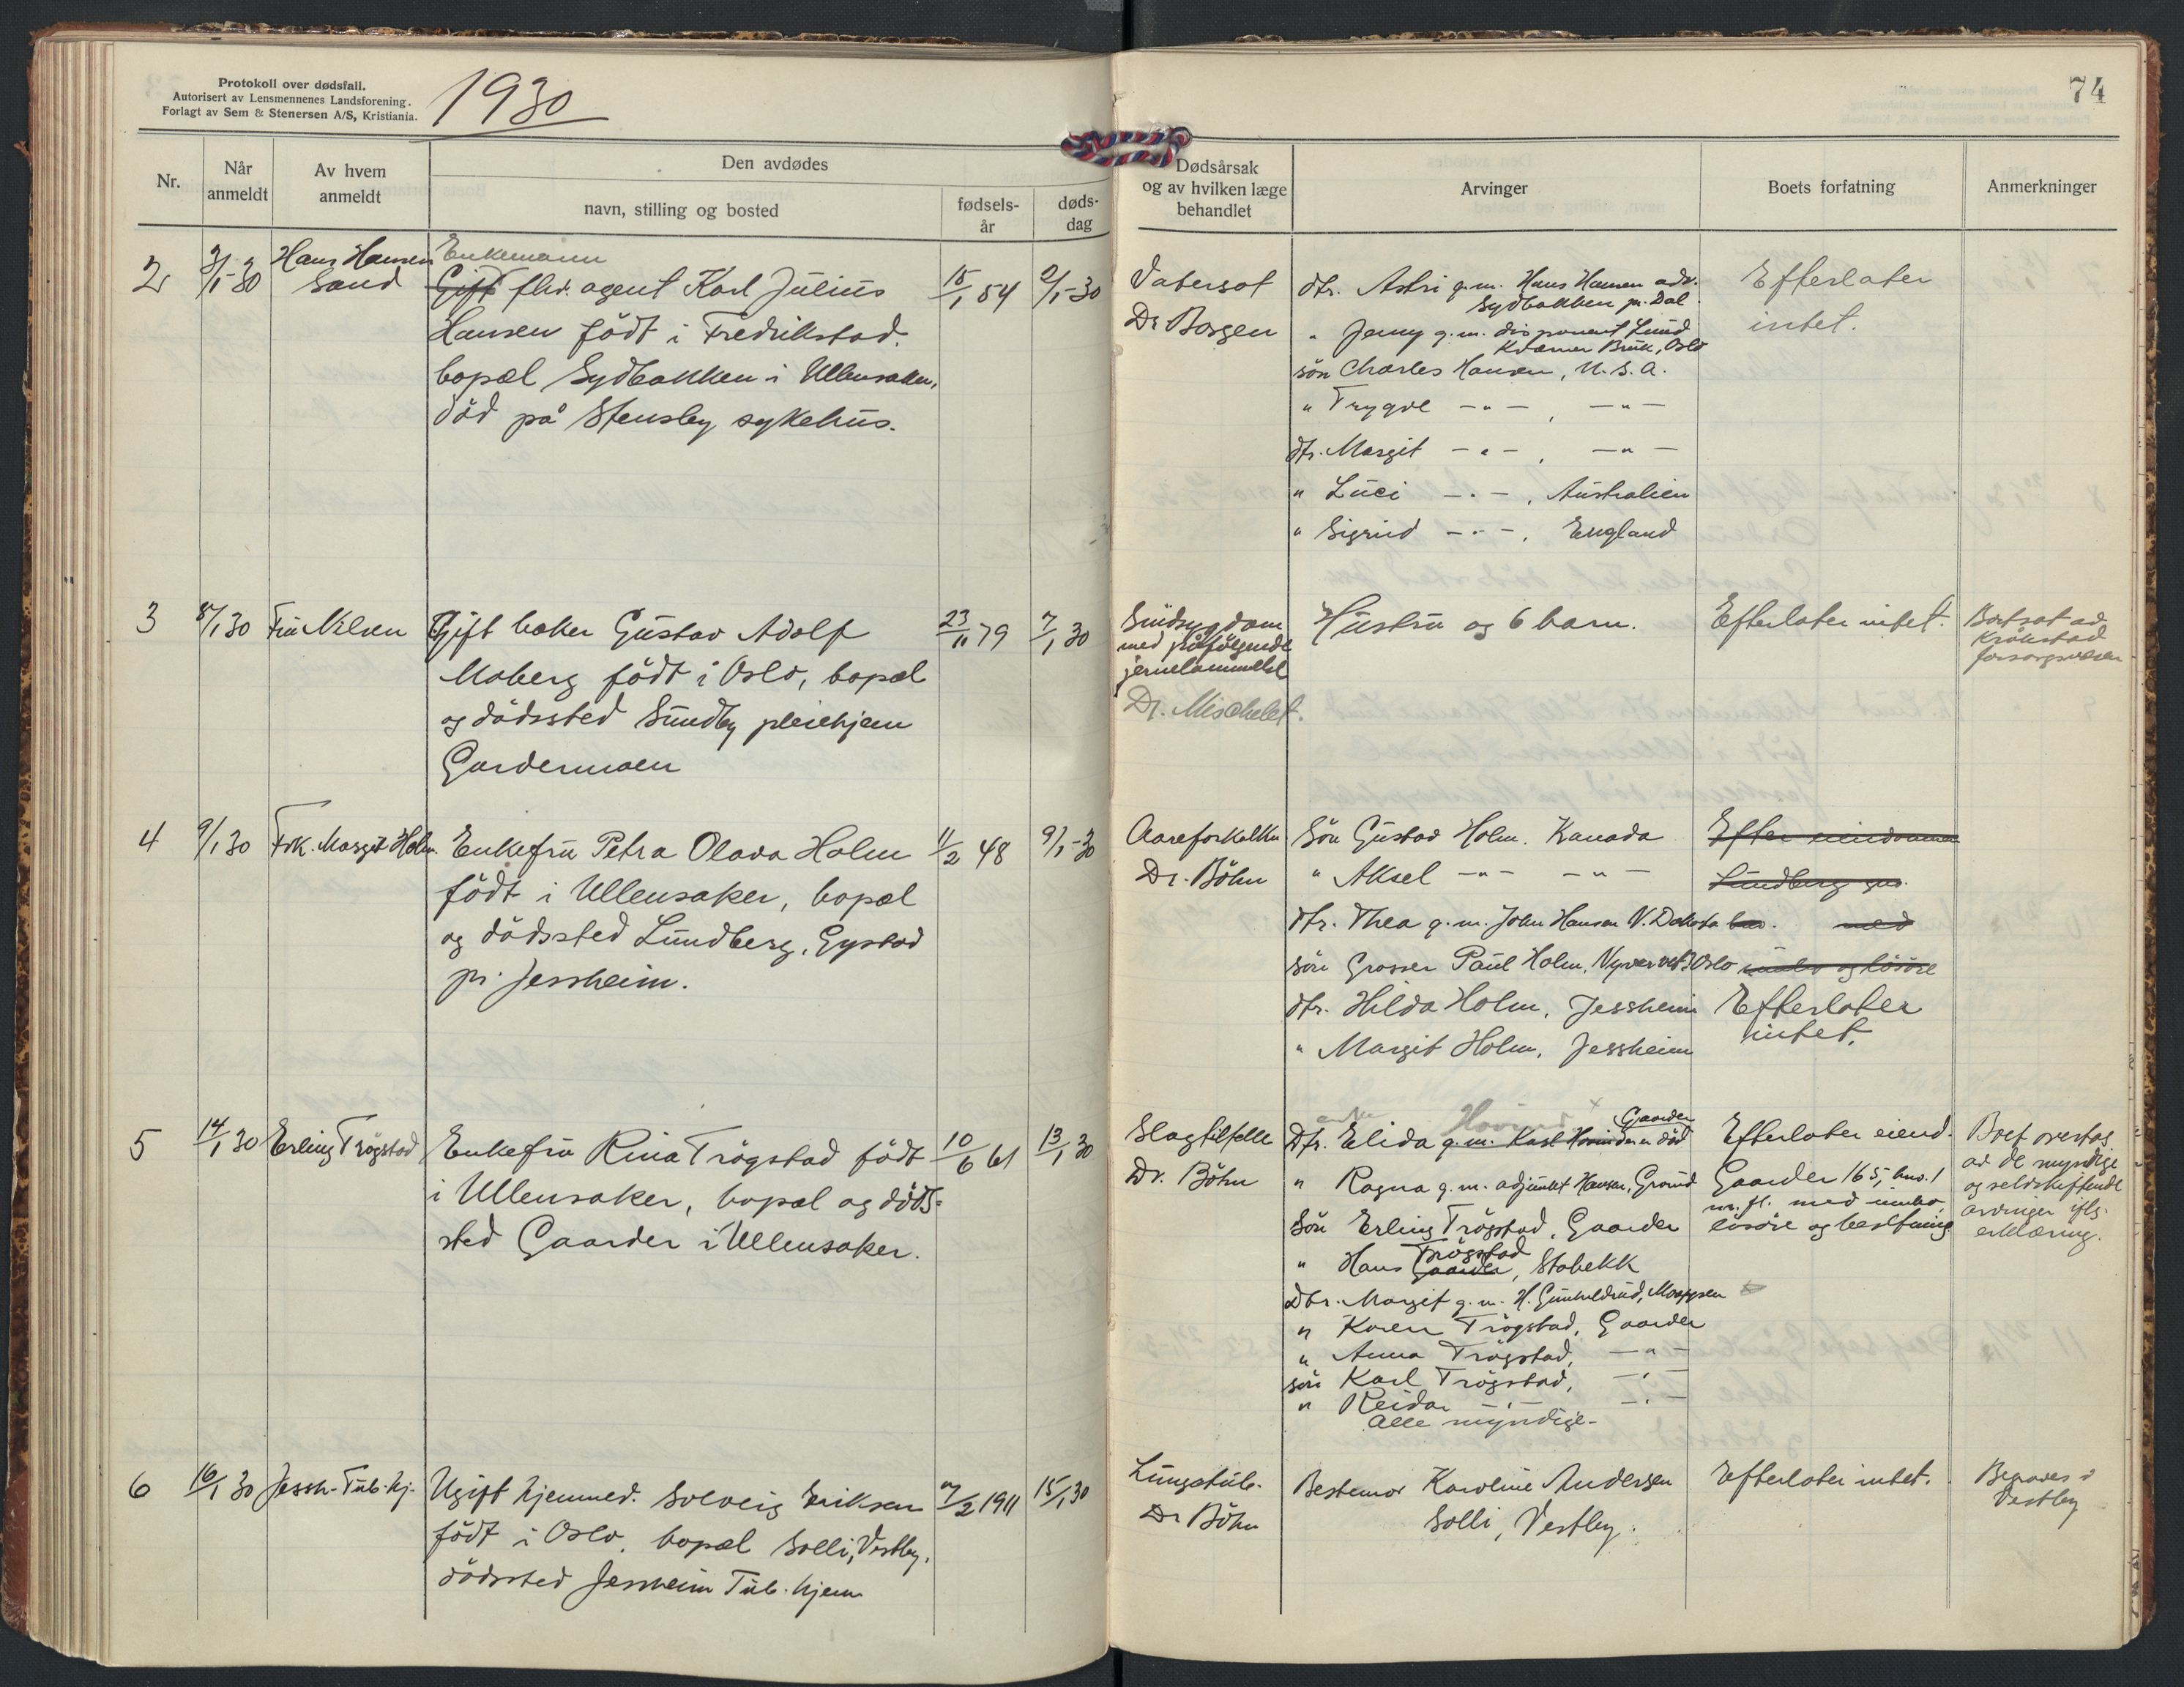 Protokoll over dødsfall.
Autorisert av Lensmennenes Landsforening.
Forlagt av Sem & Stenersen A/S, Kristiania.
1930
74
Nr.
Når anmeldt
Av hvem anmeldt
Den avdødes
navn, stilling og bosted
fødsels-år
døds-dag
Dødsårsak og av hvilken læge behandlet
Arvinger
Boets forfatning
Anmerkninger
2
3/1-30
Hans Hansen
Sand
Enkemann
Gift fhv. agent Karl Julius
Hansen födt i Fredrikstad.
bopæl Sydbakken i Ullensaker,
död på Stensby sykehus.
15/1 54
2/1-30
Vatersot
Dr Borgen
dtr. Astri g.m. Hans Hansen adr.
Sydbakken pr. Dal
" Jenny g.m. disponent Lund
Kværner Bruk, Oslo
sön Charles Hansen, U.S.A.
" Trygve -"- , -"-
dtr. Margit -"- , -"-
" Luci -"- , Australien
" Sigrid -"- , England
Efterlater
intet.
3
8/1 30
Fru Nilsen
Gift baker Gustav Adolf
Moberg födt i Oslo, bopæl
og dödssted Sundby pleiehjem
Gardermoen
23/11 79
7/1 30
Sindsygdom
med påfölgende
hjernelammelse
Dr. Mischelet.
Hustru og 6 barn.
Efterlater intet.
Bortsat av
Kråkstad
forsorgsvesen
4
9/1 30
Frk. Margit Holm.
Enkefru Petra Olava Holm
födt i Ullensaker, bopæl
og dödssted Lundberg, Gystad
pr. Jessheim.
11/2 48
9/1-30
Aareforkalkn
Dr. Böhn
Sön Gustav Holm. Kanada
" Aksel -"- -"-
dtr. Thea g.m. John Hansen N. Dakota
sön Grosser Paul Holm, Oslo
dtr. Hilda Holm, Jessheim
" Margit Holm, Jessheim
Efter eiendommen
Lundberg gno.
bno. med
innbo og lösöre
Efterlater
intet.
5
14/1 30
Erling Trögstad
Enkefru Rina Trögstad födt
i Ullensaker, bopæl og döds-
sted Gaarder i Ullensaker.
10/6 61
13/1 30
Slagtilfelle
Dr. Böhn
Gaarder
Dtr. Elida g.m. Karl Hovinder död
" Ragna g.m. adjunkt Hansen, Grorud
Sön Erling Trögstad, Gaarder
Trögstad
" Hans Gaarder, Stabekk
Dtr. Margit g.m. H. Gunhildrud,
" Karen Trögstad, Gaarder
" Anna Trögstad, -"-
sön Karl Trögstad, -"-
" Reidar -"- -"-
Alle myndige-
Efterlater eiend.
Gaarder 165, bno. 1
m.fl. med innbo,
lösöre og besetning
Boet overtas
av de myndige
og selvskiftende
arvinger iflg.
erklæring.
6
16/1 30
Jessh. Tub.hj.
Ugift hjemmed. Solveig Eriksen
födt i Oslo. bopæl Solli, Vestby.
dödssted Jessheim Tub. hjem
7/2 1911
15/1 30
Lungetub.
Dr Böhn
Bestemor Karoline Andersen
Solli, Vestby.
Efterlater intet.
Begraves i
Vestby